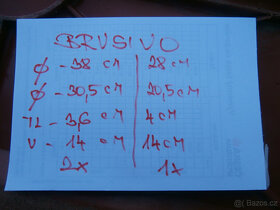 BRUSIVO
Ø - 38 cM 28 cM
Ø - 30,5 cM 20,5 cM
TL - 3,6 cM 4 cM
V - 14 cM 14 cM
2x 1x
Bazoš.cz